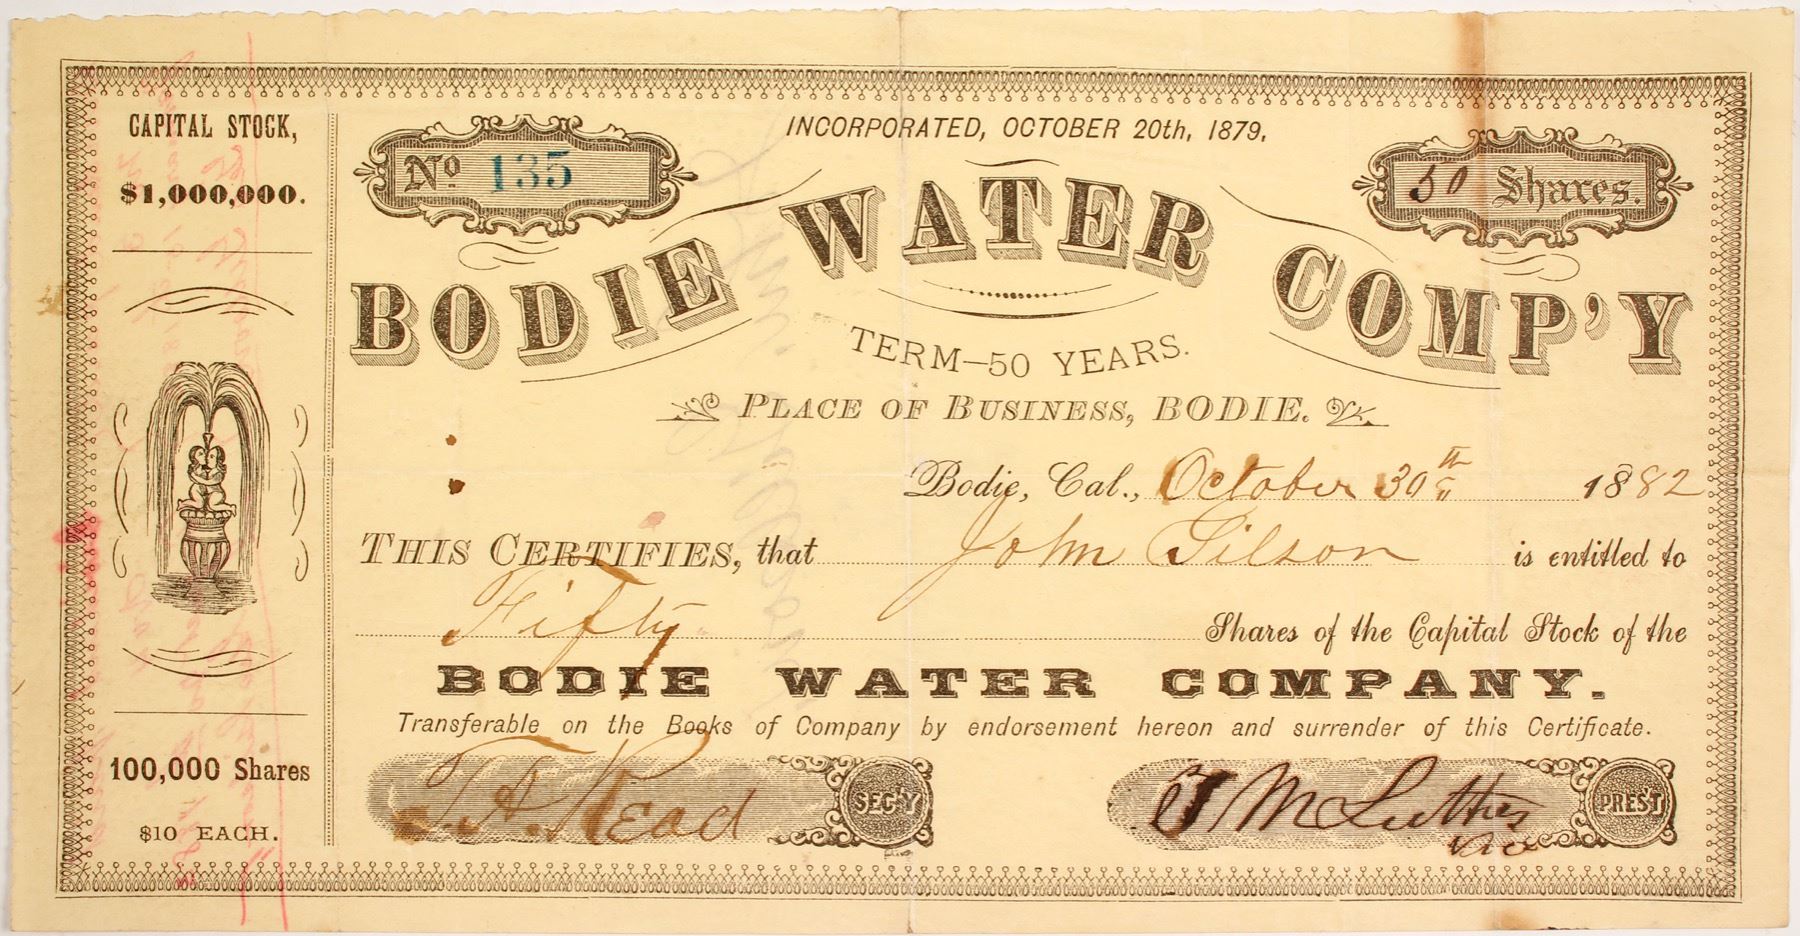 CAPITAL STOCK,
$1,000,000.
100,000 Shares
$10 EACH.
No 135
INCORPORATED, OCTOBER 20th, 1879.
50 Shares.
BODIE WATER COMP'Y
TERM—50 YEARS.
PLACE OF BUSINESS, BODIE.
Bodie, Cal., October 30th 1882
THIS CERTIFIES, that John Gilson is entitled to
Fifty Shares of the Capital Stock of the
BODIE WATER COMPANY.
Transferable on the Books of Company by endorsement hereon and surrender of this Certificate.
F. A. Read SEC'Y
M Luther PRES'T
Vice